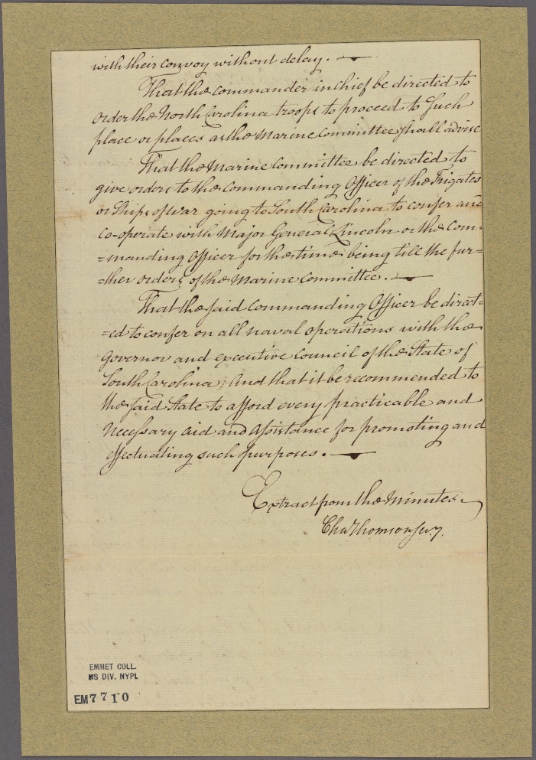 with their convoy without delay.
That the commander in chief be directed to
order the North Carolina troops to proceed to such
place or places as the Marine Committee shall advise
That the Marine Committee be directed to
give orders to the Commanding Officer of the Frigates
or Ships of war going to South Carolina to confer and
co-operate with Major General Lincoln or the Com=
=manding Officer for the time being till the fur=
ther orders of the Marine Committee.
That the said Commanding Officer be direct=
=ed to confer on all naval operations with the
Governor and executive Council of the State of
South Carolina; And that it be recommended to
the said State to afford every practicable and
necessary aid and assistance for promoting and
effectuating such purposes.
Extract from the Minutes
Cha Thomson secy.
EMMET COLL.
MS DIV. NYPL
EM7710